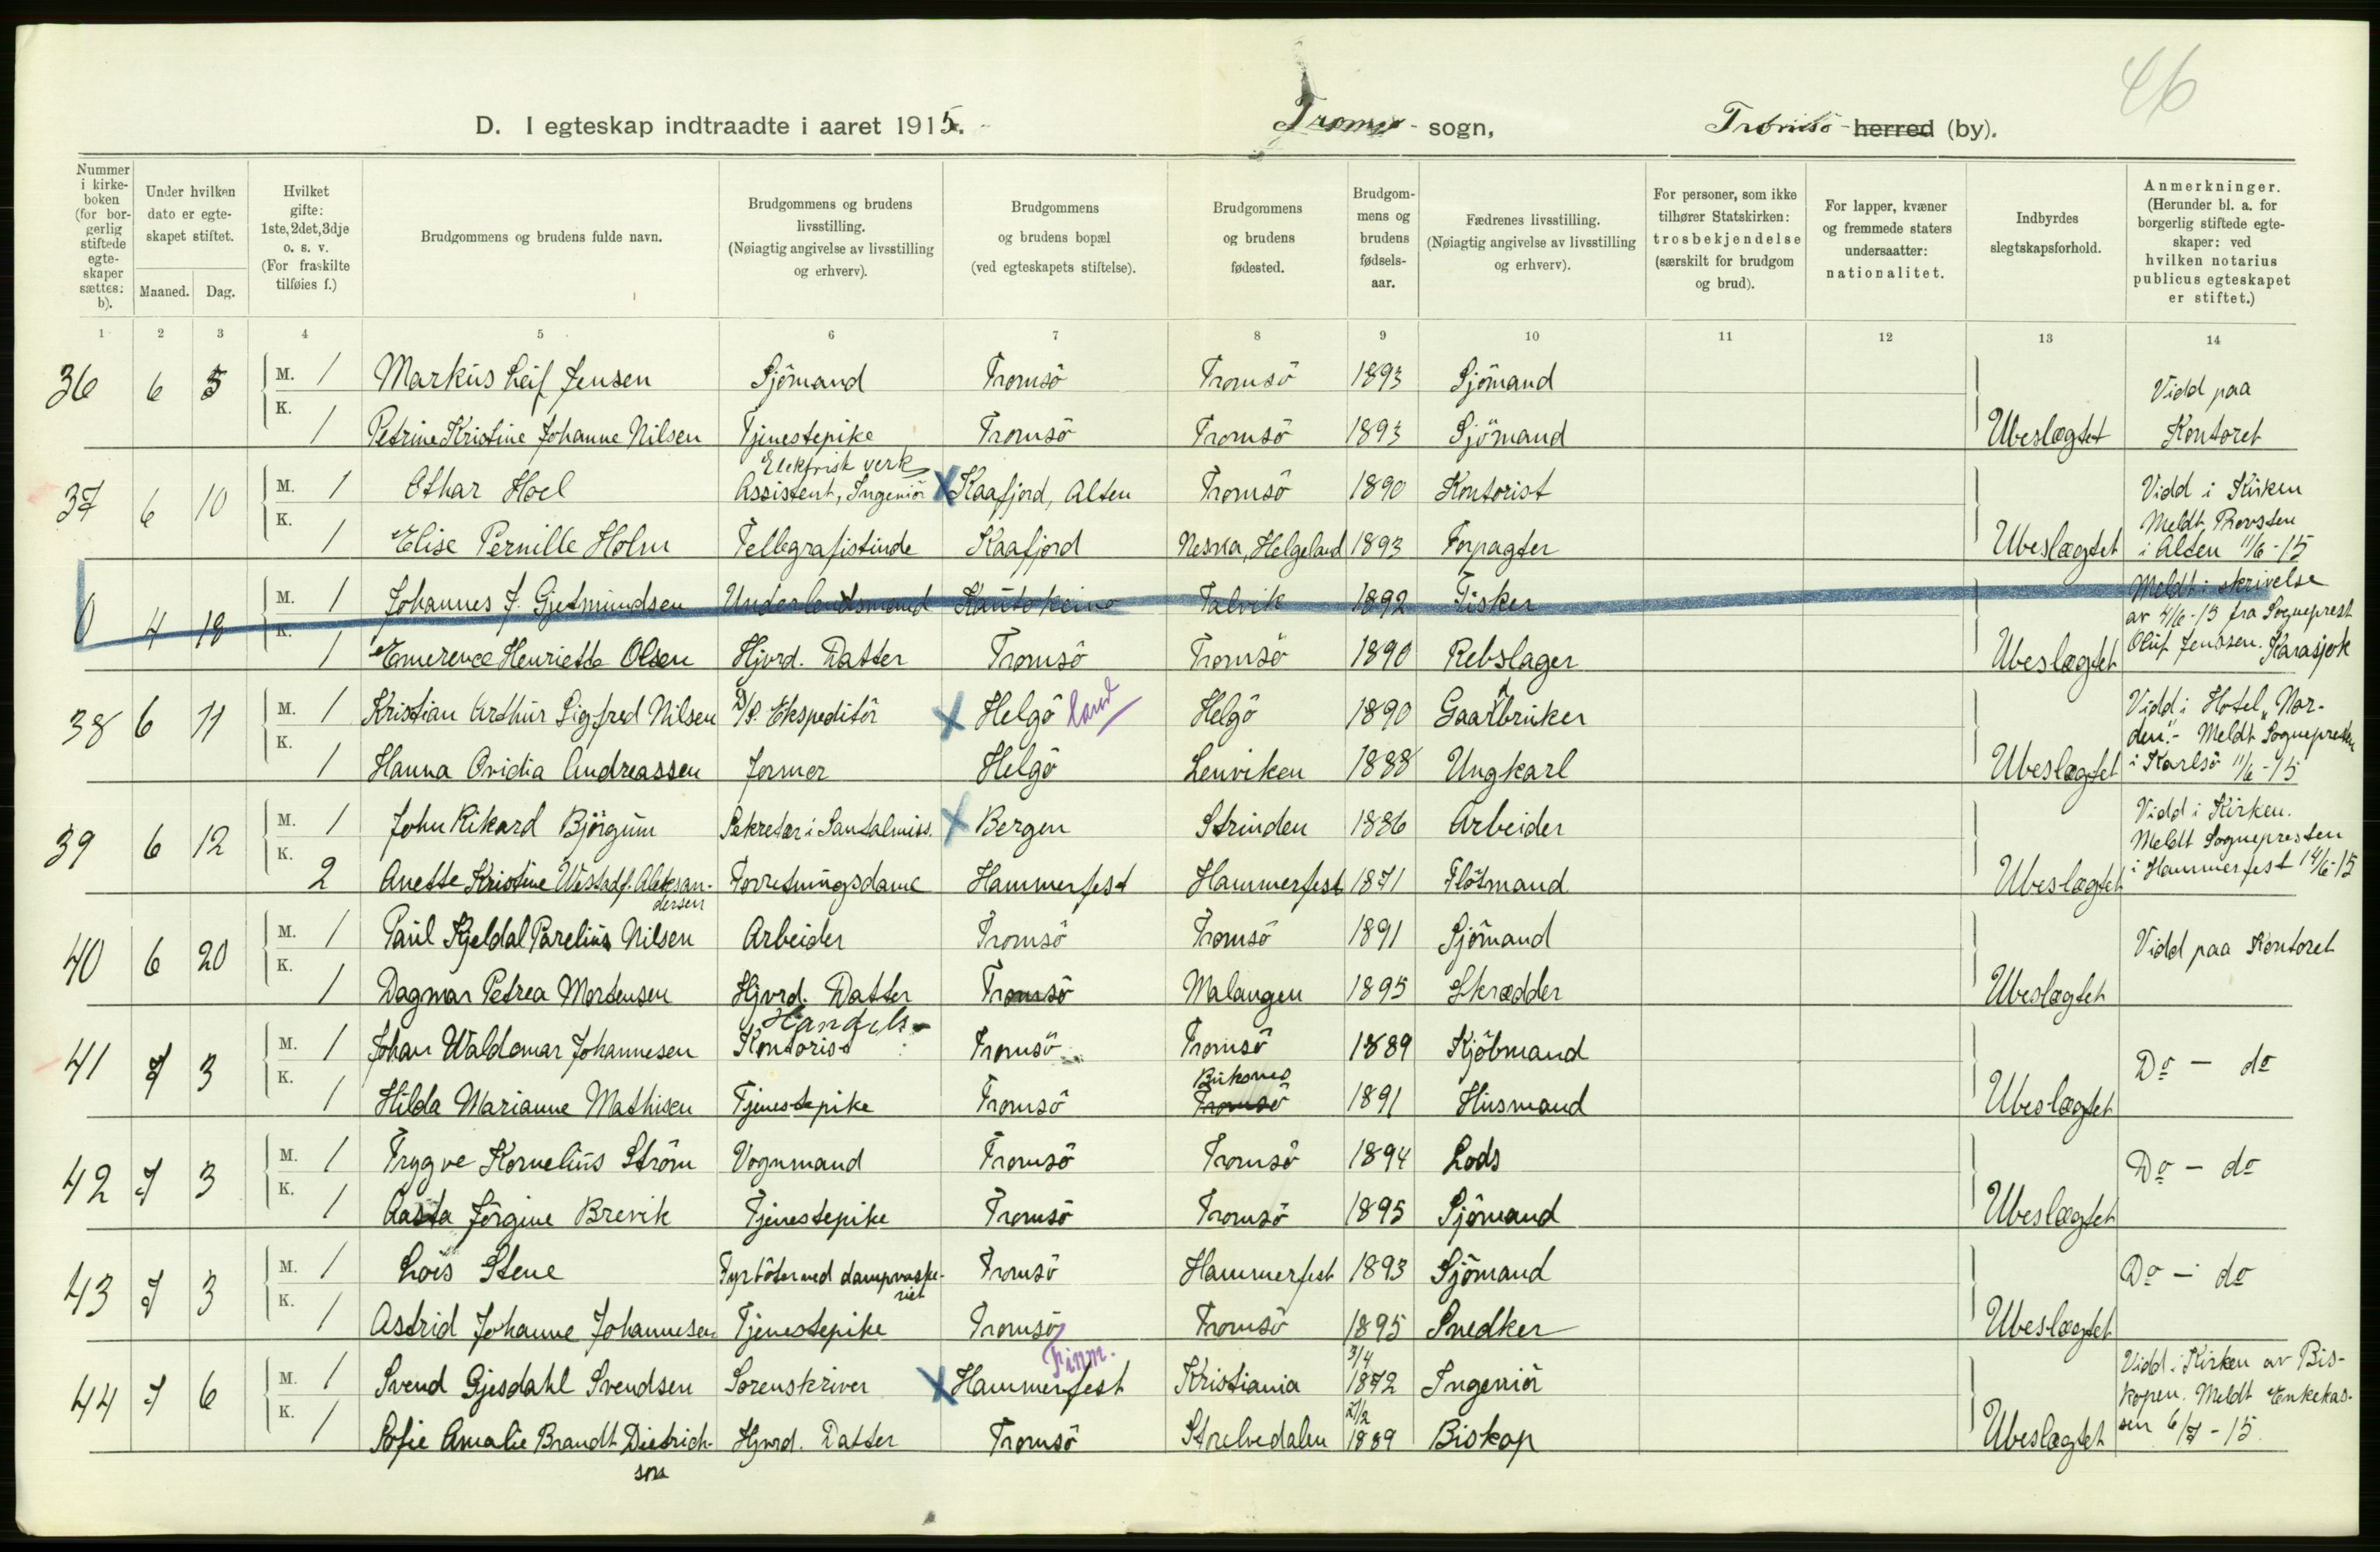 46
D. I egteskap indtraadte i aaret 1915. Tromsø - sogn, Tromsö - herred (by).
Nummer i kirkeboken (for borgerlig stiftede egteskaper sættes: b).
Under hvilken dato er egteskapet stiftet.
Maaned. Dag.
Hvilket gifte: 1ste, 2det, 3dje o. s. v. (For fraskilte tilføies f.)
Brudgommens og brudens fulde navn.
Brudgommens og brudens livsstilling. (Nøiagtig angivelse av livsstilling og erhverv).
Brudgommens og brudens bopæl (ved egteskapets stiftelse).
Brudgommens og brudens fødested.
Brudgommens og brudens fødselsaar.
Fædrenes livsstilling. (Nøiagtig angivelse av livsstilling og erhverv).
For personer, som ikke tilhører Statskirken: trosbekjendelse (særskilt for brudgom og brud).
For lapper, kvæner og fremmede staters undersaatter: nationalitet.
Indbyrdes slegtskapsforhold.
Anmerkninger. (Herunder bl. a. for borgerlig stiftede egteskaper: ved hvilken notarius publicus egteskapet er stiftet.)
1 2 3 4 5 6 7 8 9 10 11 12 13 14
36 6 5 M. 1 Markus Leif Jensen Sjömand Tromsö Tromsö 1893 Sjömand Vidd paa
K. 1 Petrine Kristine Johanne Nilsen Tjenestepike Tromsö Tromsö 1893 Sjömand Ubeslægtet Kontoret
Elektrisk verk
37 6 10 M. 1 Othar Hoel Assistent, Ingeniör X Kaafjord, Alten Tromsö 1890 Kontorist Vidd i Kirken
K. 1 Elise Pernille Holm Tellegrafistinde Kaafjord Nesna, Helgeland 1893 Forpagter Ubeslægtet Meldt Provsten
i Alten 11/6 - 15
0 4 18 M. 1 Johannes J. Gjetmundsen Underlendsmand Kautokeino Talvik 1892 Fisker Meldt i skrivelse
av 4/6 - 15 fra Sogneprest
K. 1 Emerence Henriette Olsen Hjvrd. Datter Tromsö Tromsö 1890 Rebslager Ubeslægtet Oluf Jenssen. Karasjok
38 6 11 M. 1 Kristian Arthur Sigfred Nilsen D/S. Ekspeditör X Helgö land Helgö 1890 Gaardbruker Vidd i Hotel "Norden". - Meldt Sognepresten
K. 1 Hanna Ovidia Andreassen Jormor Helgö Lenviken 1888 Ungkarl Ubeslægtet i Karlsö 11/6 - 15
39 6 12 M. 1 John Rikard Björgum Sekretær i Santalmiss. X Bergen Strinden 1886 Arbeider Vidd i Kirken.
Meldt Sognepresten
K. 2 Anette Kristine Westad f. Aleksan- Forretningsdame Hammerfest Hammerfest 1871 Flötmand Ubeslægtet i Hammerfest 14/6 - 15
dersen
40 6 20 M. 1 Paul Kjeldal Parelius Nilsen Arbeider Tromsö Tromsö 1891 Sjömand Vidd paa Kontoret
K. 1 Dagmar Petrea Mortensen Hjvrd. Datter Tromsö Malangen 1895 Skrædder Ubeslægtet
Handels-
41 7 3 M. 1 Johan Waldemar Johannesen Kontorist Tromsö Tromsö 1889 Kjöbmand Do - do
Buksnes
K. 1 Hilda Marianne Mathisen Tjenestepike Tromsö Tromsö 1891 Husmand Ubeslægtet
42 7 3 M. 1 Trygve Kornelius Ström Vognmand Tromsö Tromsö 1894 Lods Do - do
K. 1 Aasta Jörgine Brevik Tjenestepike Tromsö Tromsö 1895 Sjömand Ubeslægtet
43 7 3 M. 1 Lois Stene Fyrböter ved dampvaske- Tromsö Hammerfest 1893 Sjömand Do - do
riet
K. 1 Astrid Johanne Johannesen Tjenestepike Tromsö Tromsö 1895 Snedker Ubeslægtet
Finm. 3/4
44 7 6 M. 1 Svend Gjesdahl Svendsen Sorenskriver X Hammerfest Kristiania 1872 Ingeniör Vidd i Kirken av Bis-
kopen. Meldt Enkekas-
27/2
K. 1 Sofie Amalie Brandt Dietrich- Hjvrd. Datter Tromsö Storelvedalen 1889 Biskop Ubeslægtet sen 6/7 - 15.
son